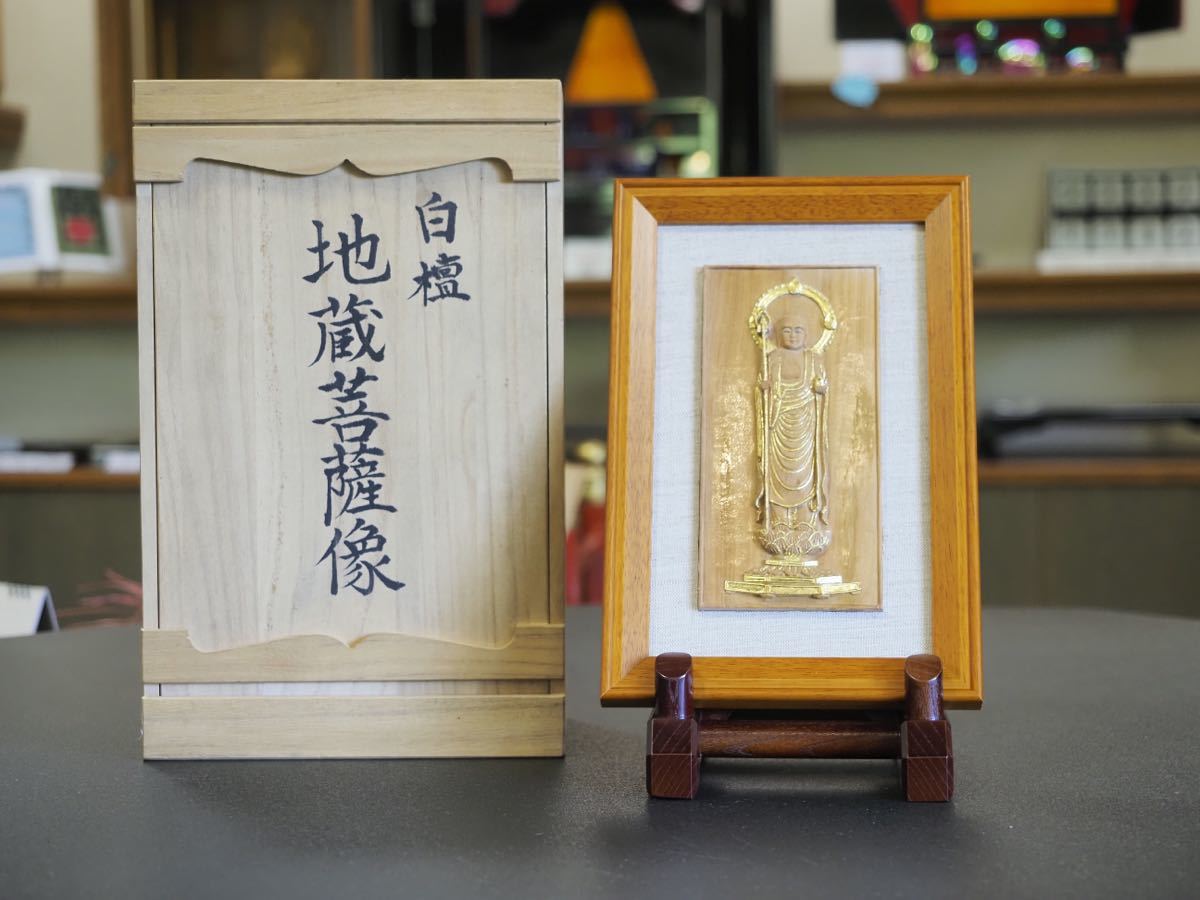 白檀
地蔵菩薩像